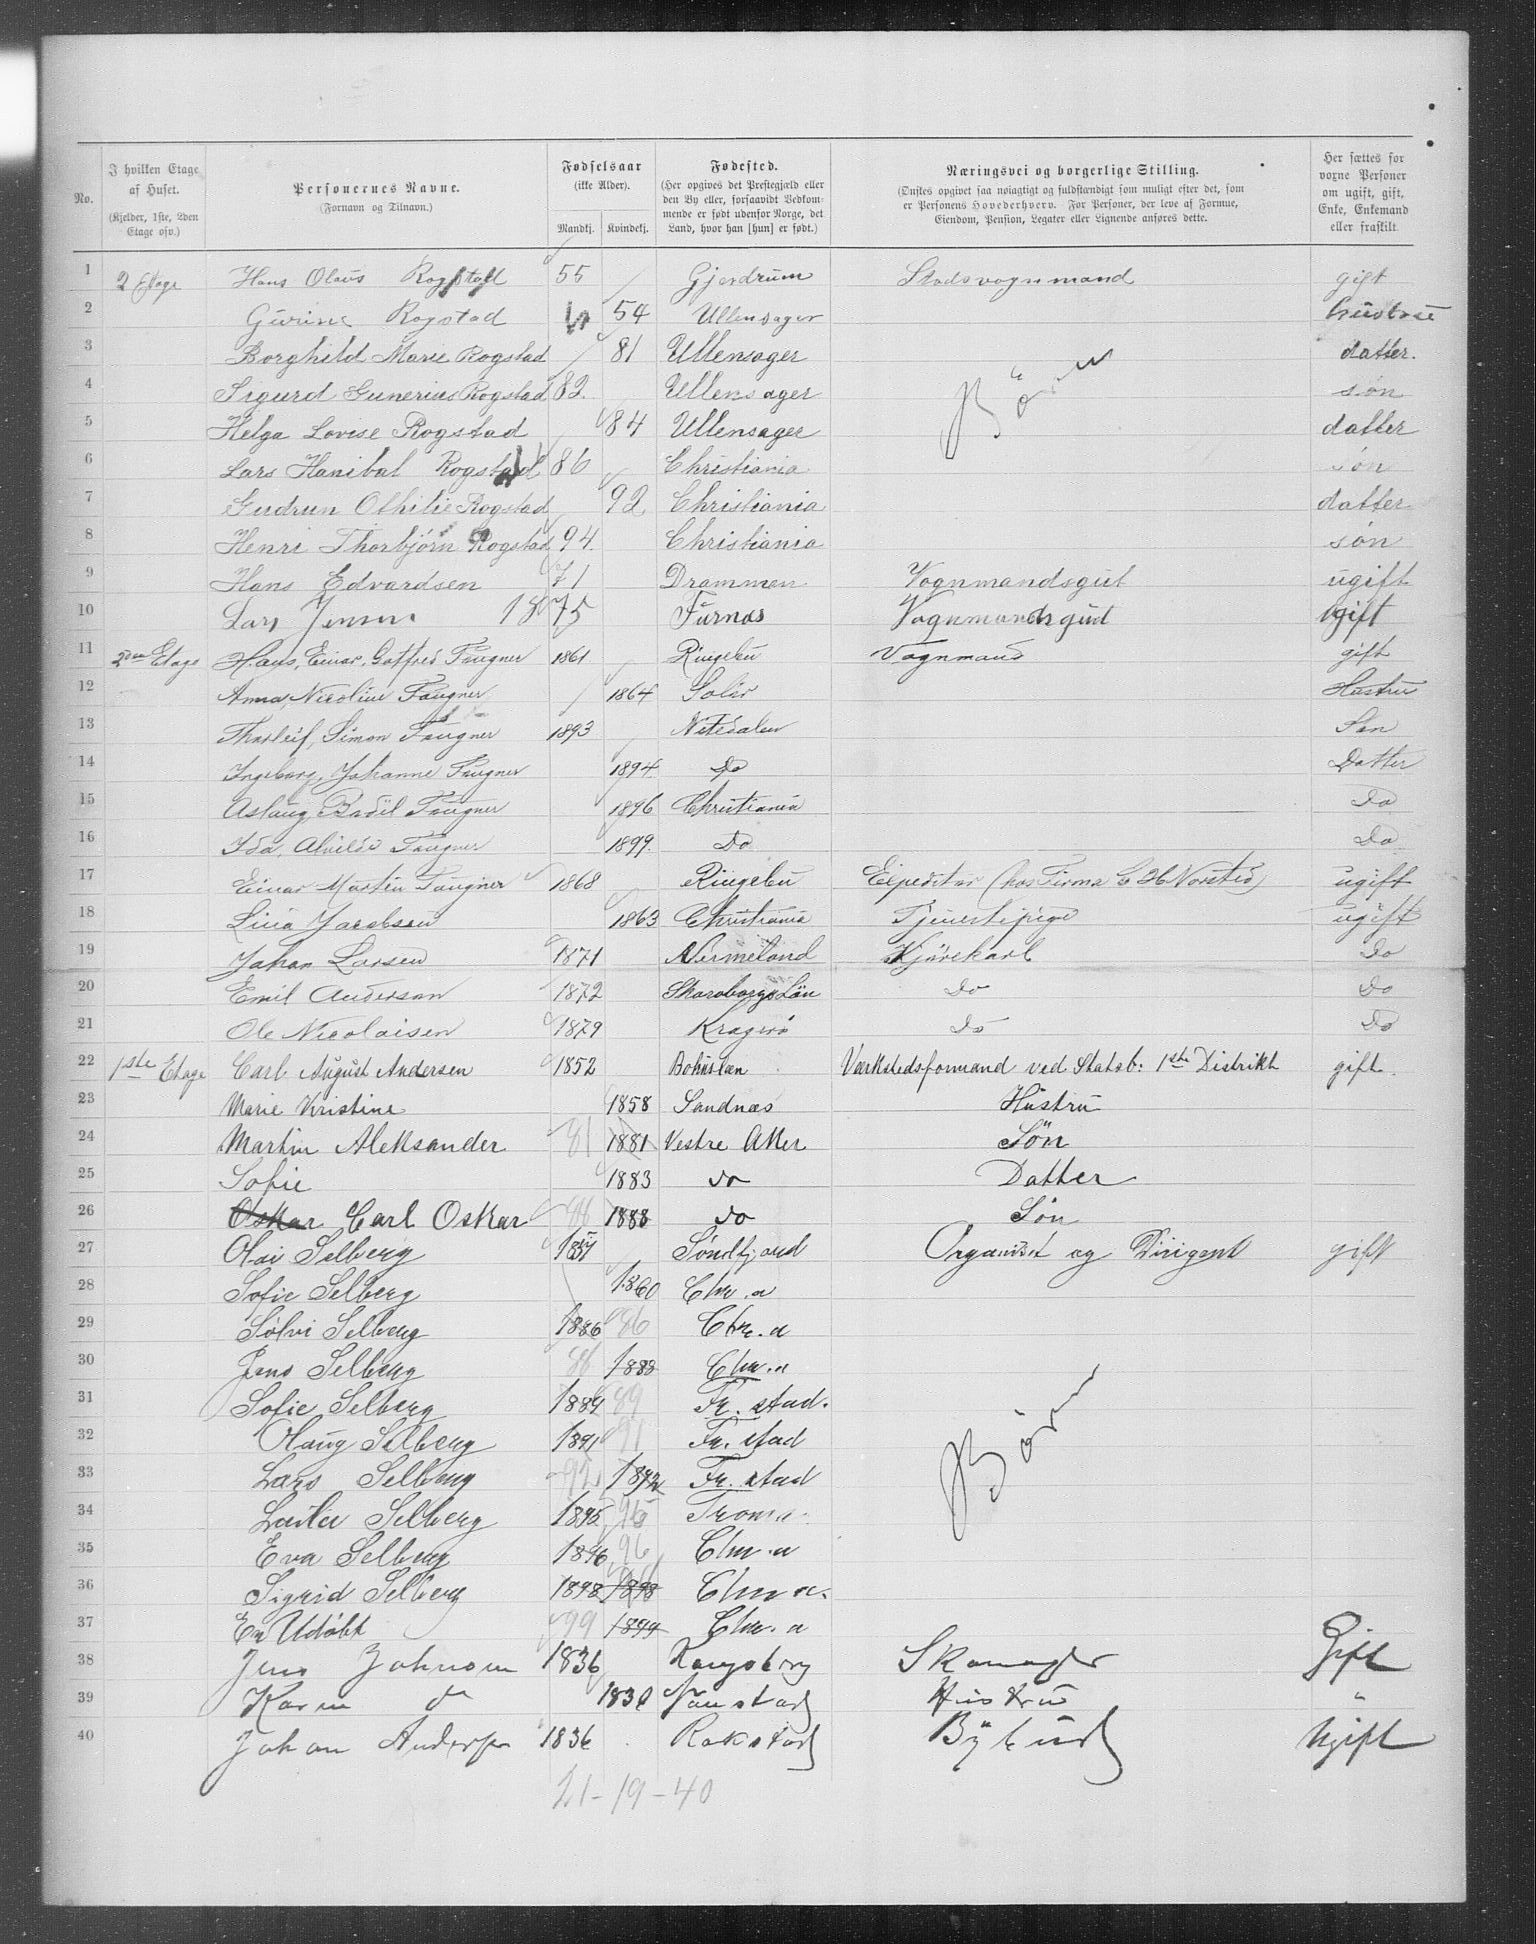 No.
I hvilken Etage af Huset. (Kjelder, 1ste, 2den Etage osv.)
Personernes Navne. (Fornavn og Tilnavn.)
Fødselsaar (ikke Alder). Mandkj. Kvindekj.
Fødested. (Her opgives det Prestegjæld eller den By eller, forsaavidt Vedkommende er født udenfor Norge, det Land, hvor han [hun] er født.)
Næringsvei og borgerlige Stilling. (Ønskes opgivet saa nøiagtigt og fuldstændigt som muligt efter det, som er Personens Hovederhverv. For Personer, der leve af Formue, Eiendom, Pension, Legater eller Lignende anføres dette.)
Her sættes for voxne Personer om ugift, gift, Enke, Enkemand eller fraskilt.
1 2 Etage Hans Olaus Rogstad 55 Gjerdrum Stadsvognmand gift
2 Gurine Rogstad 54 Ullensager hustrue
3 Borghild Marie Rogstad 81 Ullensager datter.
4 Sigurd Gunerius Rogstad 82. Ullensager Børn søn
5 Helga Lovise Rogstad 84 Ullensager datter
6 Lars Hanibal Rogstad 86 Christiania søn
7 Gudrun Othilie Rogstad 92 Christiania datter
8 Henri Thorbjørn Rogstad 94. Christiania søn
9 Hans Edvardsen 71 Drammen Vognmandsgut ugift
10 Lars Jensen 1875 Furnæs Vognmandsgut Ugift
11 2den Etage Hans, Einar, Gotfred Faugner 1861 Ringebu Vognmand gift
12 Anna, Nicoline Faugner 1864 Solør Hustru
13 Thorleif, Simon Faugner 1893 Nitedalen Søn
14 Ingeborg, Johanne Faugner 1894 Do Datter
15 Aslaug Bodil Faugner 1896 Christiania Do
16 Ida, Alvilde Faugner 1899. Do Do
17 Einar Martin Faugner 1868 Ringebu Expeditør (hos Firma C H Norsted) ugift
18 Lina Jacobsen 1863 Christiania Tjenestepige ugift
19 Johan Larsen 1871 Vermeland Kjørekarl Do
20 Emil Anderson 1872 Skaraborgs Län Do Do
21 Ole Nicolaisen 1879 Kragerø Do Do
22 1ste Etage Carl August Andersen 1852 Bohuslen Værkstedsformand ved Statsb: 1ste Distrikt gift.
23 Marie Kristine 1858 Sandnæs Hustru
24 Martin Aleksander 81 1881 Vestre Aker Søn
25 Sofie 1883 do Datter
26 Oskar Carl Oskar 88 1888 do Søn
27 Olai Selberg Søndfjord Organist og Dirigent gift
28 Sofie Selberg 1860 Chr.a
29 Sølvi Selberg 1886 86 Chr.a
30 Jens Selberg 88 1888 Chr.a
31 Sofie Selberg 1889 89 Fr. stad.
32 Olaug Selberg 1891 91 Fr. stad
33 Lars Selberg 92 1892 Fr. stad Børn
34 Selberg 1895 95 Tromsø
35 Eva Selberg 1896 96 Chr.a
36 Sigrid Selberg 1898 1898 Chr.a.
37 En Udøbt 99 1899 Chr.a
38 Jens Johnsen 1836 Kongsberg Skomager Gift
39 Karen do Hustru "
40 Johan Andersen 1836 Rakstad Ugift
21-19-40